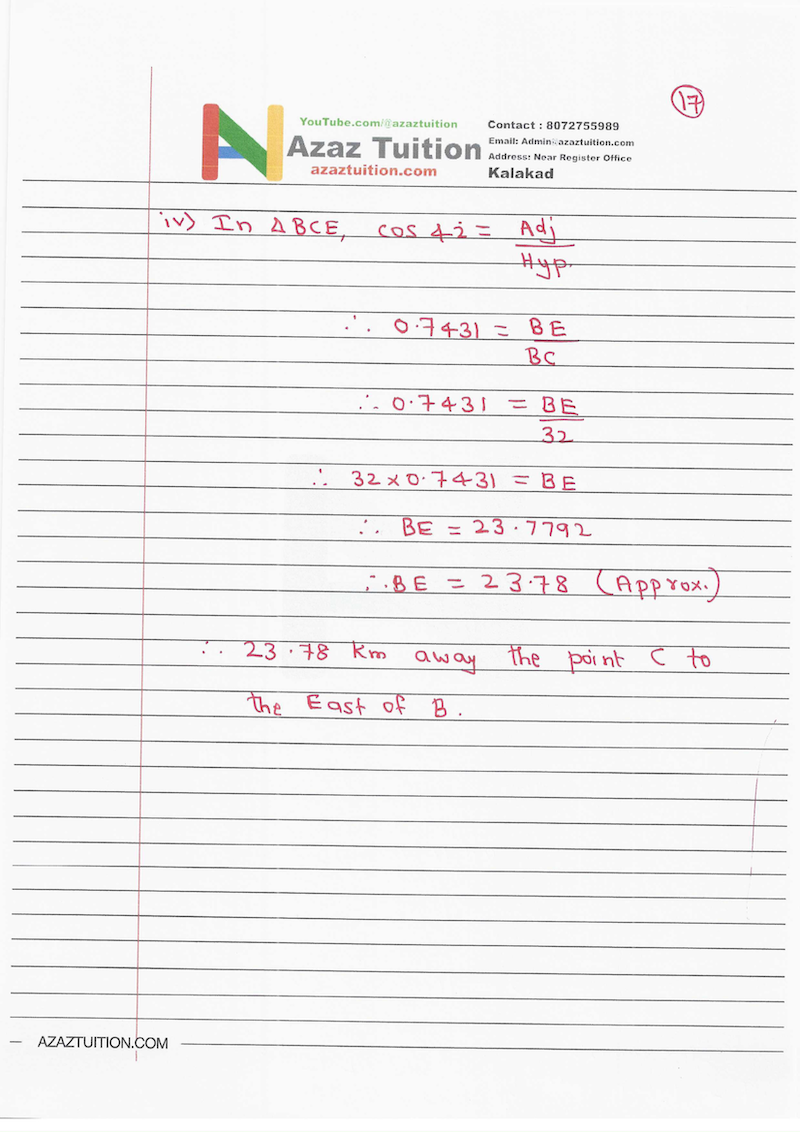 17
YouTube.com/@azaztuition
Azaz Tuition
azaztuition.com
Contact : 8072755989
Email: Admin@azaztuition.com
Address: Near Register Office
Kalakad
iv) In Δ BCE, cos 42 = Adj
Hyp.
∴ 0.7431 = BE
BC
∴ 0.7431 = BE
32
∴ 32 × 0.7431 = BE
∴ BE = 23.7792
∴ BE = 23.78 (Approx.)
∴ 23.78 km away the point C to
the East of B.
AZAZTUITION.COM